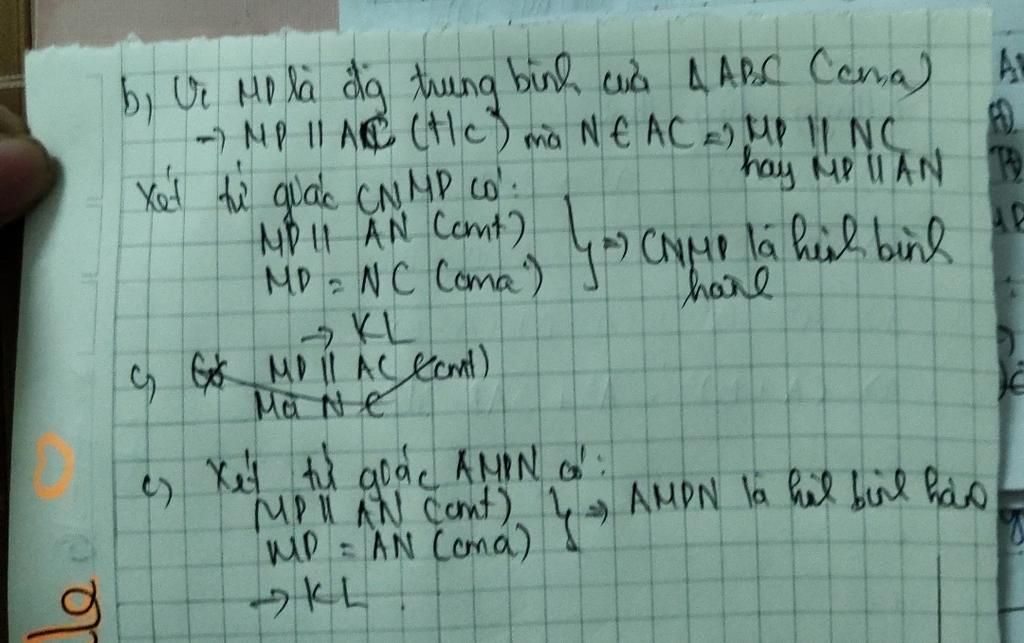 b, Vì MP là đg trung bình của Δ ABC (cma)
→ MP // AC (t/c) mà N ∈ AC => MP // NC
hay MP // AN
Xét tứ giác CNMP có:
MP // AN (cmt)
MP = NC (cma)
} => CNMP là hình bình
hành
→ KL
c, MP // AC (cmt)
Mà N ∈
c, Xét tứ giác AMPN có:
MP // AN (cmt)
MP = AN (cma)
} => AMPN là hình bình hành
→ KL.